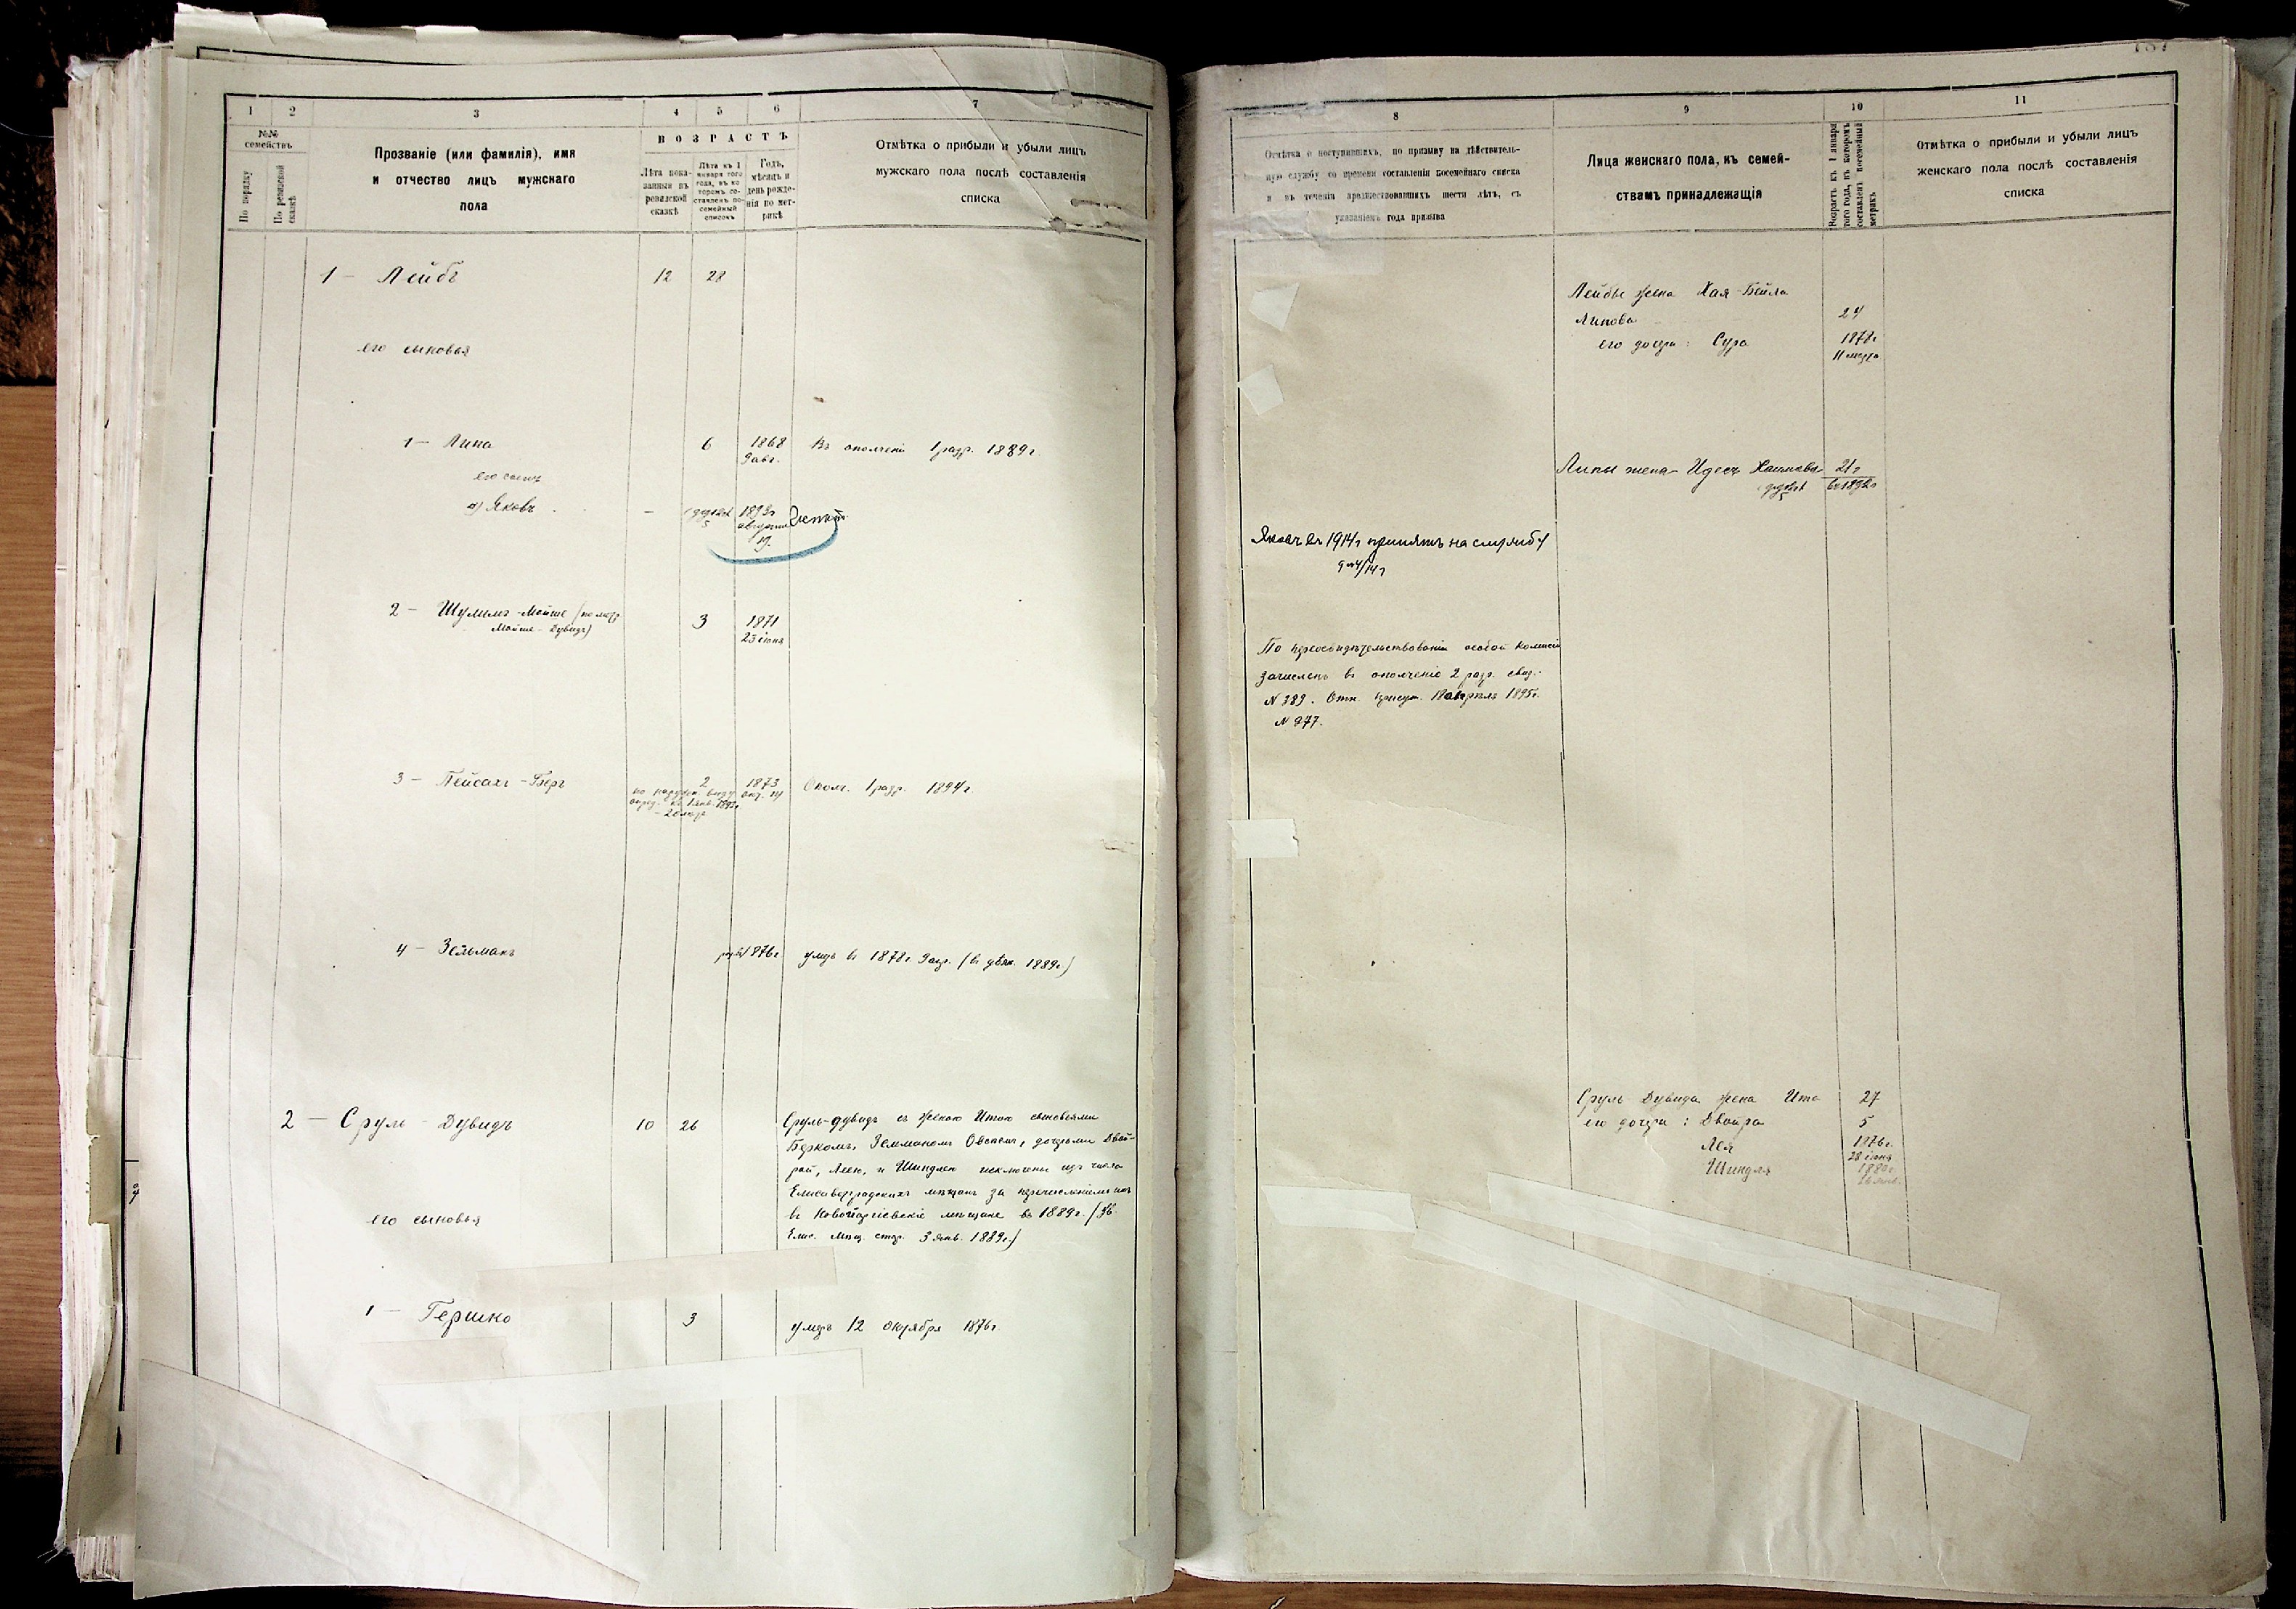 1 2 3 4 5 6 7
№№ семействъ
По порядку
По ревизской сказкѣ
Прозваніе (или фамилія), имя
и отчество лицъ мужскаго
пола
ВОЗРАСТЪ
Лѣта пока-
занныя въ
ревизской
сказкѣ
Лѣта къ 1
января того
года, въ ко-
торомъ со-
ставленъ по-
семейный
списокъ
Годъ,
мѣсяцъ и
день рожде-
нія по мет-
рикѣ
Отмѣтка о прибыли и убыли лицъ
мужскаго пола послѣ составленія
списка
1 — Лейбъ 12 28
его сыновья
1 — Липа 6 1868 Въ ополченіи 1 разр. 1889 г.
9 авг.
его сынъ
а) Яковъ — 1893 г.
августа
19.
2 — Шулимъ-Мойше (по метр. 3 1871
Мойше-Дувидъ) 23 іюня
3 — Пейсахъ-Беръ 2 1873 Ополч. 1 разр. 1894 г.
по наружн. виду
4 — Зельманъ 1876 г. умръ въ 1878 г. (въ 1889 г.)
2 — Сруль-Дувидъ 10 26 Сруль-Дувидъ съ женою Итою сыновьями
Беркомъ, Зельманомъ Овсеемъ, дочерьми Двой-
рой, Леею, и Шиндлею исключены изъ числа
Елисаветградскихъ мѣщанъ за перечисленіемъ ихъ
въ Новогеоргіевскіе мѣщане въ 1889 г. (Ув.
Елис. Мѣщ. стар. 3 янв. 1889 г.)
его сыновья
1 — Гершко 3 умръ 12 октября 1876 г.
8 9 10 11
Отмѣтка о поступившихъ, по призыву на дѣйствитель-
ную службу со времени составленія посемейнаго списка
и въ теченіи предшествовавшихъ шести лѣтъ, съ
указаніемъ года призыва
Лица женскаго пола, къ семей-
ствамъ принадлежащія
Возрастъ къ 1 января
того года, въ которомъ
составленъ посемейный
Отмѣтка о прибыли и убыли лицъ
женскаго пола послѣ составленія
списка
Лейбы жена Хая-Бейла
Липова 24
его дочери: Сура 1878 г.
11 марта
Липы жена — Идесъ 21 г.
Яковъ въ 1914 г. принятъ на службу
По переосвидѣтельствованіи особой комисіи
зачисленъ въ ополченіе 2 разр. свид.
N 389. Отн. присут. 18 апрѣля 1895 г.
N 977.
Сруль Дувида жена Ита 27
его дочери: Двойра 5
Лея 1876 г.
28 іюня
Шиндля 1880 г.